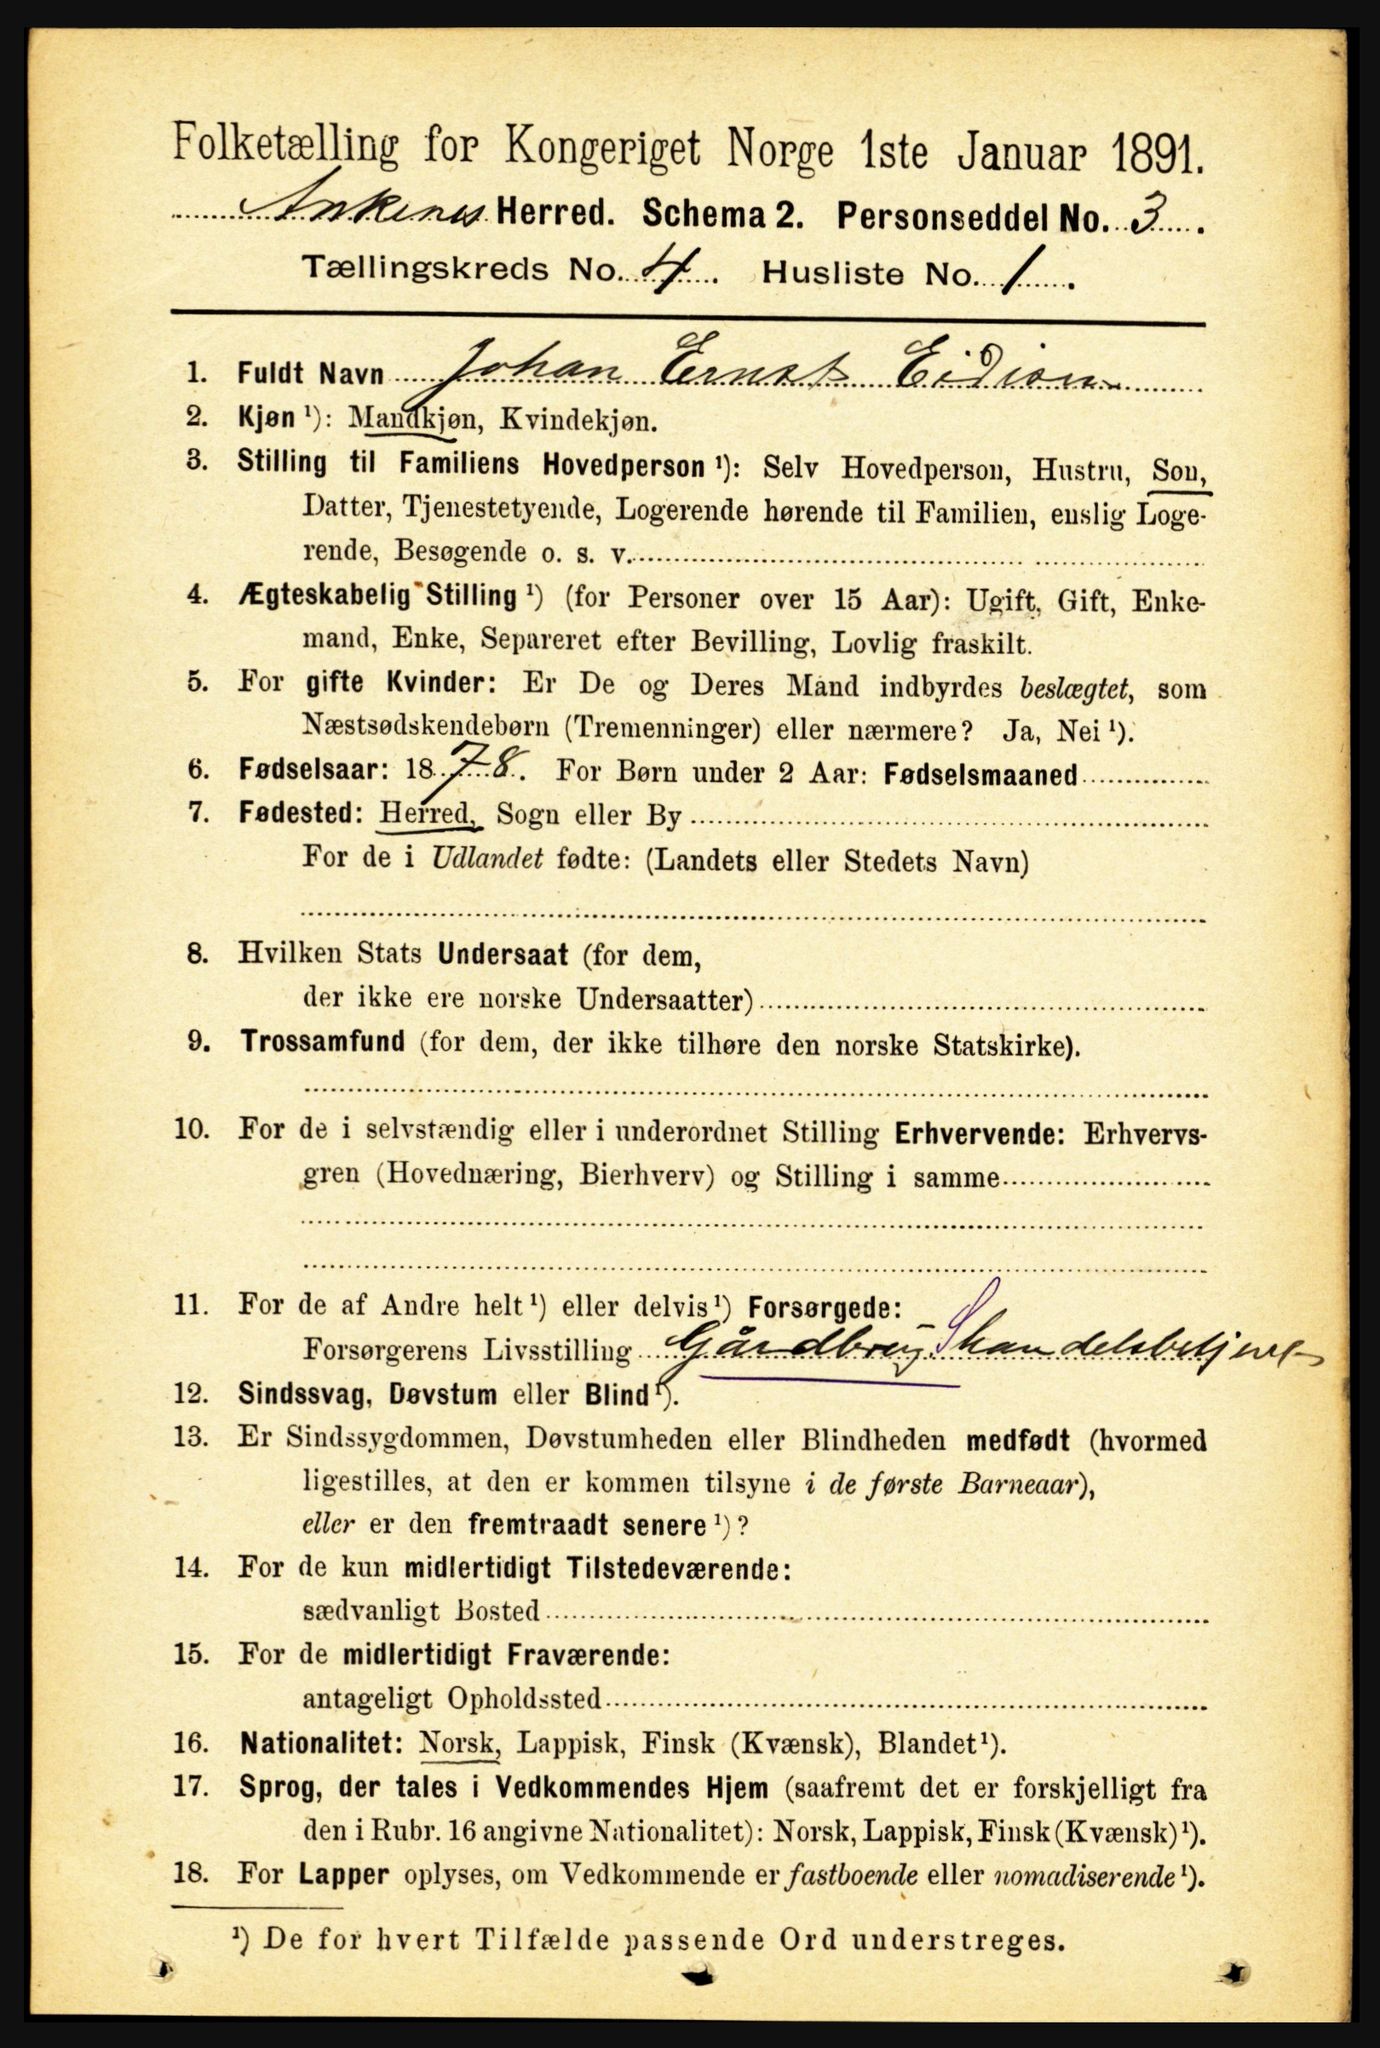 Folketælling for Kongeriget Norge 1ste Januar 1891.
Ankenes Herred. Schema 2. Personseddel No. 3.
Tællingskreds No. 4. Husliste No. 1.
1. Fuldt Navn Johan Ernst
2. Kjøn ¹): Mandkjøn, Kvindekjøn.
3. Stilling til Familiens Hovedperson ¹): Selv Hovedperson, Hustru, Søn,
Datter, Tjenestetyende, Logerende hørende til Familien, enslig Loge-
rende, Besøgende o. s. v.
4. Ægteskabelig Stilling ¹) (for Personer over 15 Aar): Ugift, Gift, Enke-
mand, Enke, Separeret efter Bevilling, Lovlig fraskilt.
5. For gifte Kvinder: Er De og Deres Mand indbyrdes beslægtet, som
Næstsødskendebørn (Tremenninger) eller nærmere? Ja, Nei ¹).
6. Fødselsaar: 1878. For Børn under 2 Aar: Fødselsmaaned
7. Fødested: Herred, Sogn eller By
For de i Udlandet fødte: (Landets eller Stedets Navn)
8. Hvilken Stats Undersaat (for dem,
der ikke ere norske Undersaatter)
9. Trossamfund (for dem, der ikke tilhøre den norske Statskirke).
10. For de i selvstændig eller i underordnet Stilling Erhvervende: Erhvervs-
gren (Hovednæring, Bierhverv) og Stilling i samme
11. For de af Andre helt ¹) eller delvis ¹) Forsørgede:
Forsørgerens Livsstilling Gårdbrug
12. Sindssvag, Døvstum eller Blind ¹).
13. Er Sindssygdommen, Døvstumheden eller Blindheden medfødt (hvormed
ligestilles, at den er kommen tilsyne i de første Barneaar),
eller er den fremtraadt senere ¹)?
14. For de kun midlertidigt Tilstedeværende:
sædvanligt Bosted
15. For de midlertidigt Fraværende:
antageligt Opholdssted
16. Nationalitet: Norsk, Lappisk, Finsk (Kvænsk), Blandet ¹).
17. Sprog, der tales i Vedkommendes Hjem (saafremt det er forskjelligt fra
den i Rubr. 16 angivne Nationalitet): Norsk, Lappisk, Finsk (Kvænsk) ¹).
18. For Lapper oplyses, om Vedkommende er fastboende eller nomadiserende ¹).
¹) De for hvert Tilfælde passende Ord understreges.